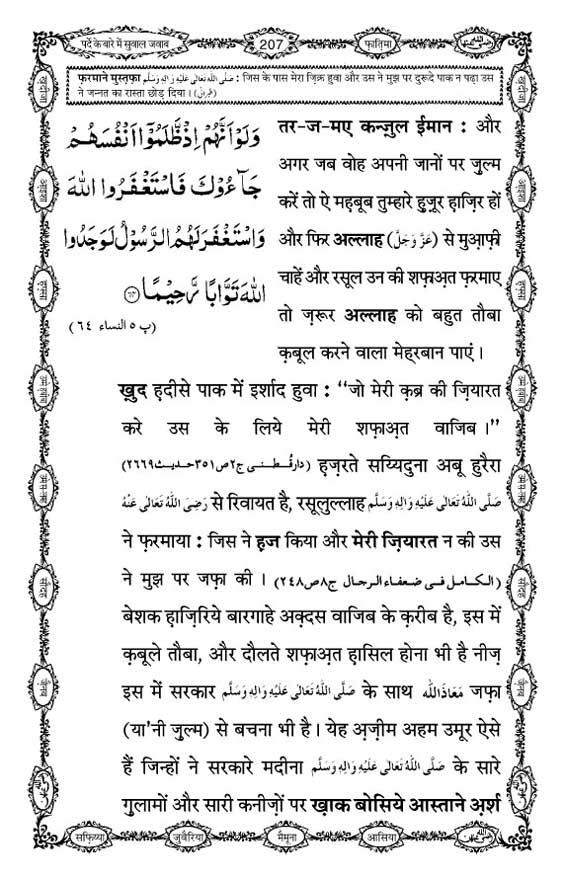 पर्दे के बारे में सुवाल जवाब
207
फ़ातिमा
फ़रमाने मुस्तफ़ा صَلَّى اللهُ تَعَالٰى عَلَيْهِ وَاٰلِهٖ وَسَلَّم : जिस के पास मेरा ज़िक्र हुवा और उस ने मुझ पर दुरूदे पाक न पढ़ा उस
ने जन्नत का रास्ता छोड़ दिया। (طبرانی)
وَلَوْ اَنَّهُمْ اِذْ ظَّلَمُوْۤا اَنْفُسَهُمْ
جَآءُوْكَ فَاسْتَغْفَرُوا اللّٰهَ
وَاسْتَغْفَرَ لَهُمُ الرَّسُوْلُ لَوَجَدُوا
اللّٰهَ تَوَّابًا رَّحِيْمًا ۝۶۴
(پ ٥ النساء ٦٤)
तर-ज-मए कन्ज़ुल ईमान : और
अगर जब वोह अपनी जानों पर ज़ुल्म
करें तो ऐ महबूब तुम्हारे हुज़ूर हाज़िर हों
और फिर अल्लाह (عَزَّوَجَلَّ) से मुआफ़ी
चाहें और रसूल उन की शफ़ाअत फ़रमाए
तो ज़रूर अल्लाह को बहुत तौबा
क़बूल करने वाला मेहरबान पाएं।
ख़ुद हदीसे पाक में इर्शाद हुवा : ‘‘जो मेरी क़ब्र की ज़ियारत
करे उस के लिये मेरी शफ़ाअत वाजिब।’’
(دارقُطنی ج٢ص٣٥١حديث٢٦٦٩) हज़रते सय्यिदुना अबू हुरैरा
رَضِيَ اللهُ تَعَالٰى عَنْهُ से रिवायत है, रसूलुल्लाह صَلَّى اللهُ تَعَالٰى عَلَيْهِ وَاٰلِهٖ وَسَلَّم
ने फ़रमाया : जिस ने हज किया और मेरी ज़ियारत न की उस
ने मुझ पर जफ़ा की। (الكامل فى ضعفاء الرجال ج٨ص٢٤٨)
बेशक हाज़िरिये बारगाहे अक़्दस वाजिब के क़रीब है, इस में
क़बूले तौबा, और दौलते शफ़ाअत हासिल होना भी है नीज़
इस में सरकार صَلَّى اللهُ تَعَالٰى عَلَيْهِ وَاٰلِهٖ وَسَلَّم के साथ مَعَاذَ الله जफ़ा
(या'नी ज़ुल्म) से बचना भी है। येह अज़ीम अहम उमूर ऐसे
हैं जिन्हों ने सरकारे मदीना صَلَّى اللهُ تَعَالٰى عَلَيْهِ وَاٰلِهٖ وَسَلَّم के सारे
ग़ुलामों और सारी कनीज़ों पर ख़ाक बोसिये आस्ताने अ़र्श
सफ़िय्या
जुवैरिया
मैमूना
आसिया